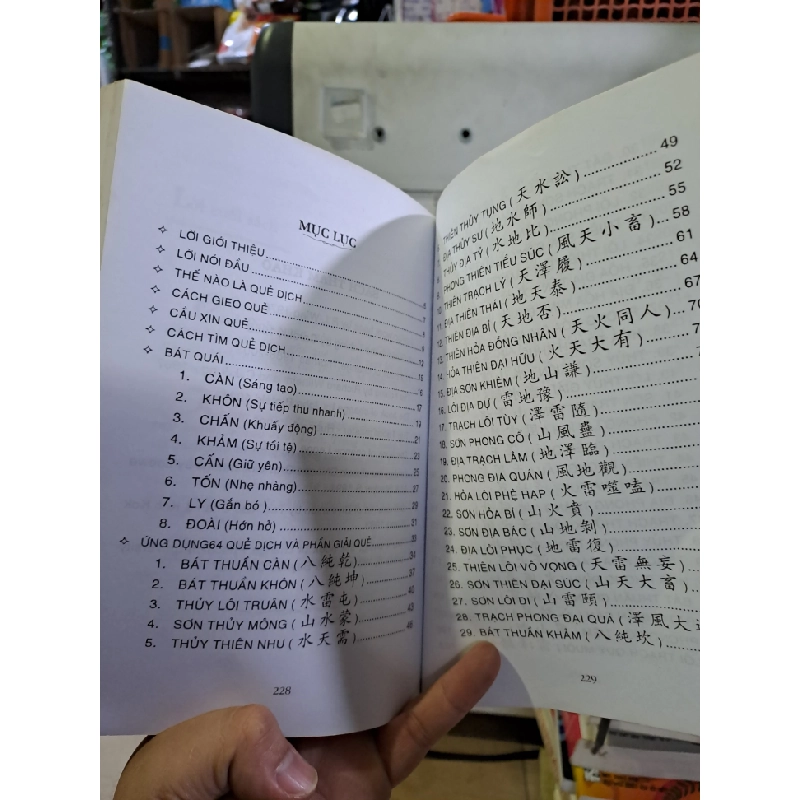 MỤC LỤC
✧ LỜI GIỚI THIỆU
✧ LỜI NÓI ĐẦU
✧ THẾ NÀO LÀ QUẺ DỊCH
✧ CÁCH GIEO QUẺ
✧ CẦU XIN QUẺ
✧ CÁCH TÌM QUẺ DỊCH
✧ BÁT QUÁI
1. CÀN (Sáng tạo)
2. KHÔN (Sự tiếp thu nhanh) 17
3. CHẤN (Khuấy động) 21
4. KHẢM (Sự tồi tệ) 23
5. CẤN (Giữ yên) 25
6. TỐN (Nhẹ nhàng) 27
7. LY (Gắn bó) 29
8. ĐOÀI (Hớn hở) 31
✧ ỨNG DỤNG64 QUẺ DỊCH VÀ PHẦN GIẢI QUẺ 33
1. BÁT THUẦN CÀN (八純乾)
2. BÁT THUẦN KHÔN (八純坤) 37
3. THỦY LÔI TRUÂN (水雷屯) 40
4. SƠN THỦY MÔNG (山水蒙) 43
5. THỦY THIÊN NHU (水天需) 46
228
THIÊN THỦY TỤNG (天水訟) 49
ĐỊA THỦY SƯ (地水師) 52
THỦY ĐỊA TỶ (水地比) 55
PHONG THIÊN TIỂU SÚC (風天小畜) 58
THIÊN TRẠCH LÝ (天澤履) 61
ĐỊA THIÊN THÁI (地天泰) 64
12. THIÊN ĐỊA BĨ (天地否) 67
13. THIÊN HỎA ĐỒNG NHÂN (天火同人) 70
14. HỎA THIÊN ĐẠI HỮU (火天大有)
15. ĐỊA SƠN KHIÊM (地山謙)
16. LÔI ĐỊA DỰ (雷地豫)
17. TRẠCH LÔI TÙY (澤雷隨)
18. SƠN PHONG CỔ (山風蠱)
19. ĐỊA TRẠCH LÂM (地澤臨)
20. PHONG ĐỊA QUÁN (風地觀)
21. HỎA LÔI PHỆ HẠP (火雷噬嗑)
22. SƠN HỎA BÍ (山火賁)
23. SƠN ĐỊA BÁC (山地剝)
24. ĐỊA LÔI PHỤC (地雷復)
25. THIÊN LÔI VÔ VỌNG (天雷無妄)
26. SƠN THIÊN ĐẠI SÚC (山天大畜)
27. SƠN LÔI DI (山雷頤)
28. TRẠCH PHONG ĐẠI QUÁ (澤風大
29. BÁT THUẦN KHẢM (八純坎)
229